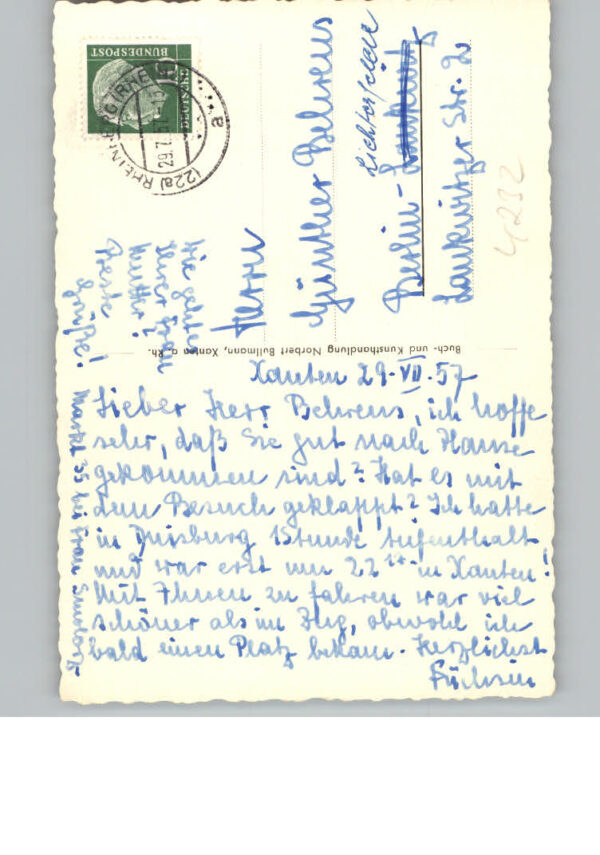 Xanten 29.VII.57
Lieber Herr Behrens, ich hoffe
sehr, daß Sie gut nach Hause
gekommen sind? Hat es mit
dem Besuch geklappt? Ich hatte
in Duisburg 1 Stunde Aufenthalt
und war erst um 22 in Xanten!
Mit Ihnen zu fahren war viel
schöner als im Zug, obwohl ich
bald einen Platz bekam. Herzlichst
Markt 35 bei Frau
Wie geht es
Ihrer Frau
Mutter?
Beste
Grüße!
Herrn
Günther Behrens
Lichterfelde
Berlin-
Lankwitzer Str. 2
4232
Buch- und Kunsthandlung Norbert Bullmann, Xanten a. Rh.
DEUTSCHE
BUNDESPOST
(22a) RHEINBERG
29.7.57
a